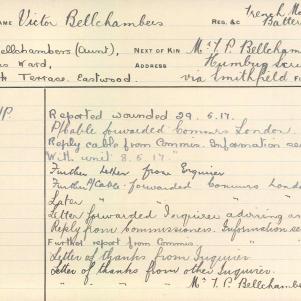 AME Victor Bellchambers
REG. &C
Trench Mo
Batter
Bellchambers (Aunt),
NEXT OF KIN Mr T. P. Bellcham
s Ward,
ADDRESS Humbug Scru
Terrace. Eastwood.
via Smithfield
P.
Reported wounded 29.5.17.
P/Cable forwarded Commrs London.
Reply cable from Commrs. Information se
With unit 8.6.17."
Further Letter from Enquirer
Further P/Cable forwarded Commrs Lond
Later " " "
Letter forwarded Inquiree advising an
Reply from Commissioners. Information se
Further report from Commrs. "
Letter of thanks from Inquirer.
Letter of thanks from other Inquirer.
Mr T. P. Bellchamb